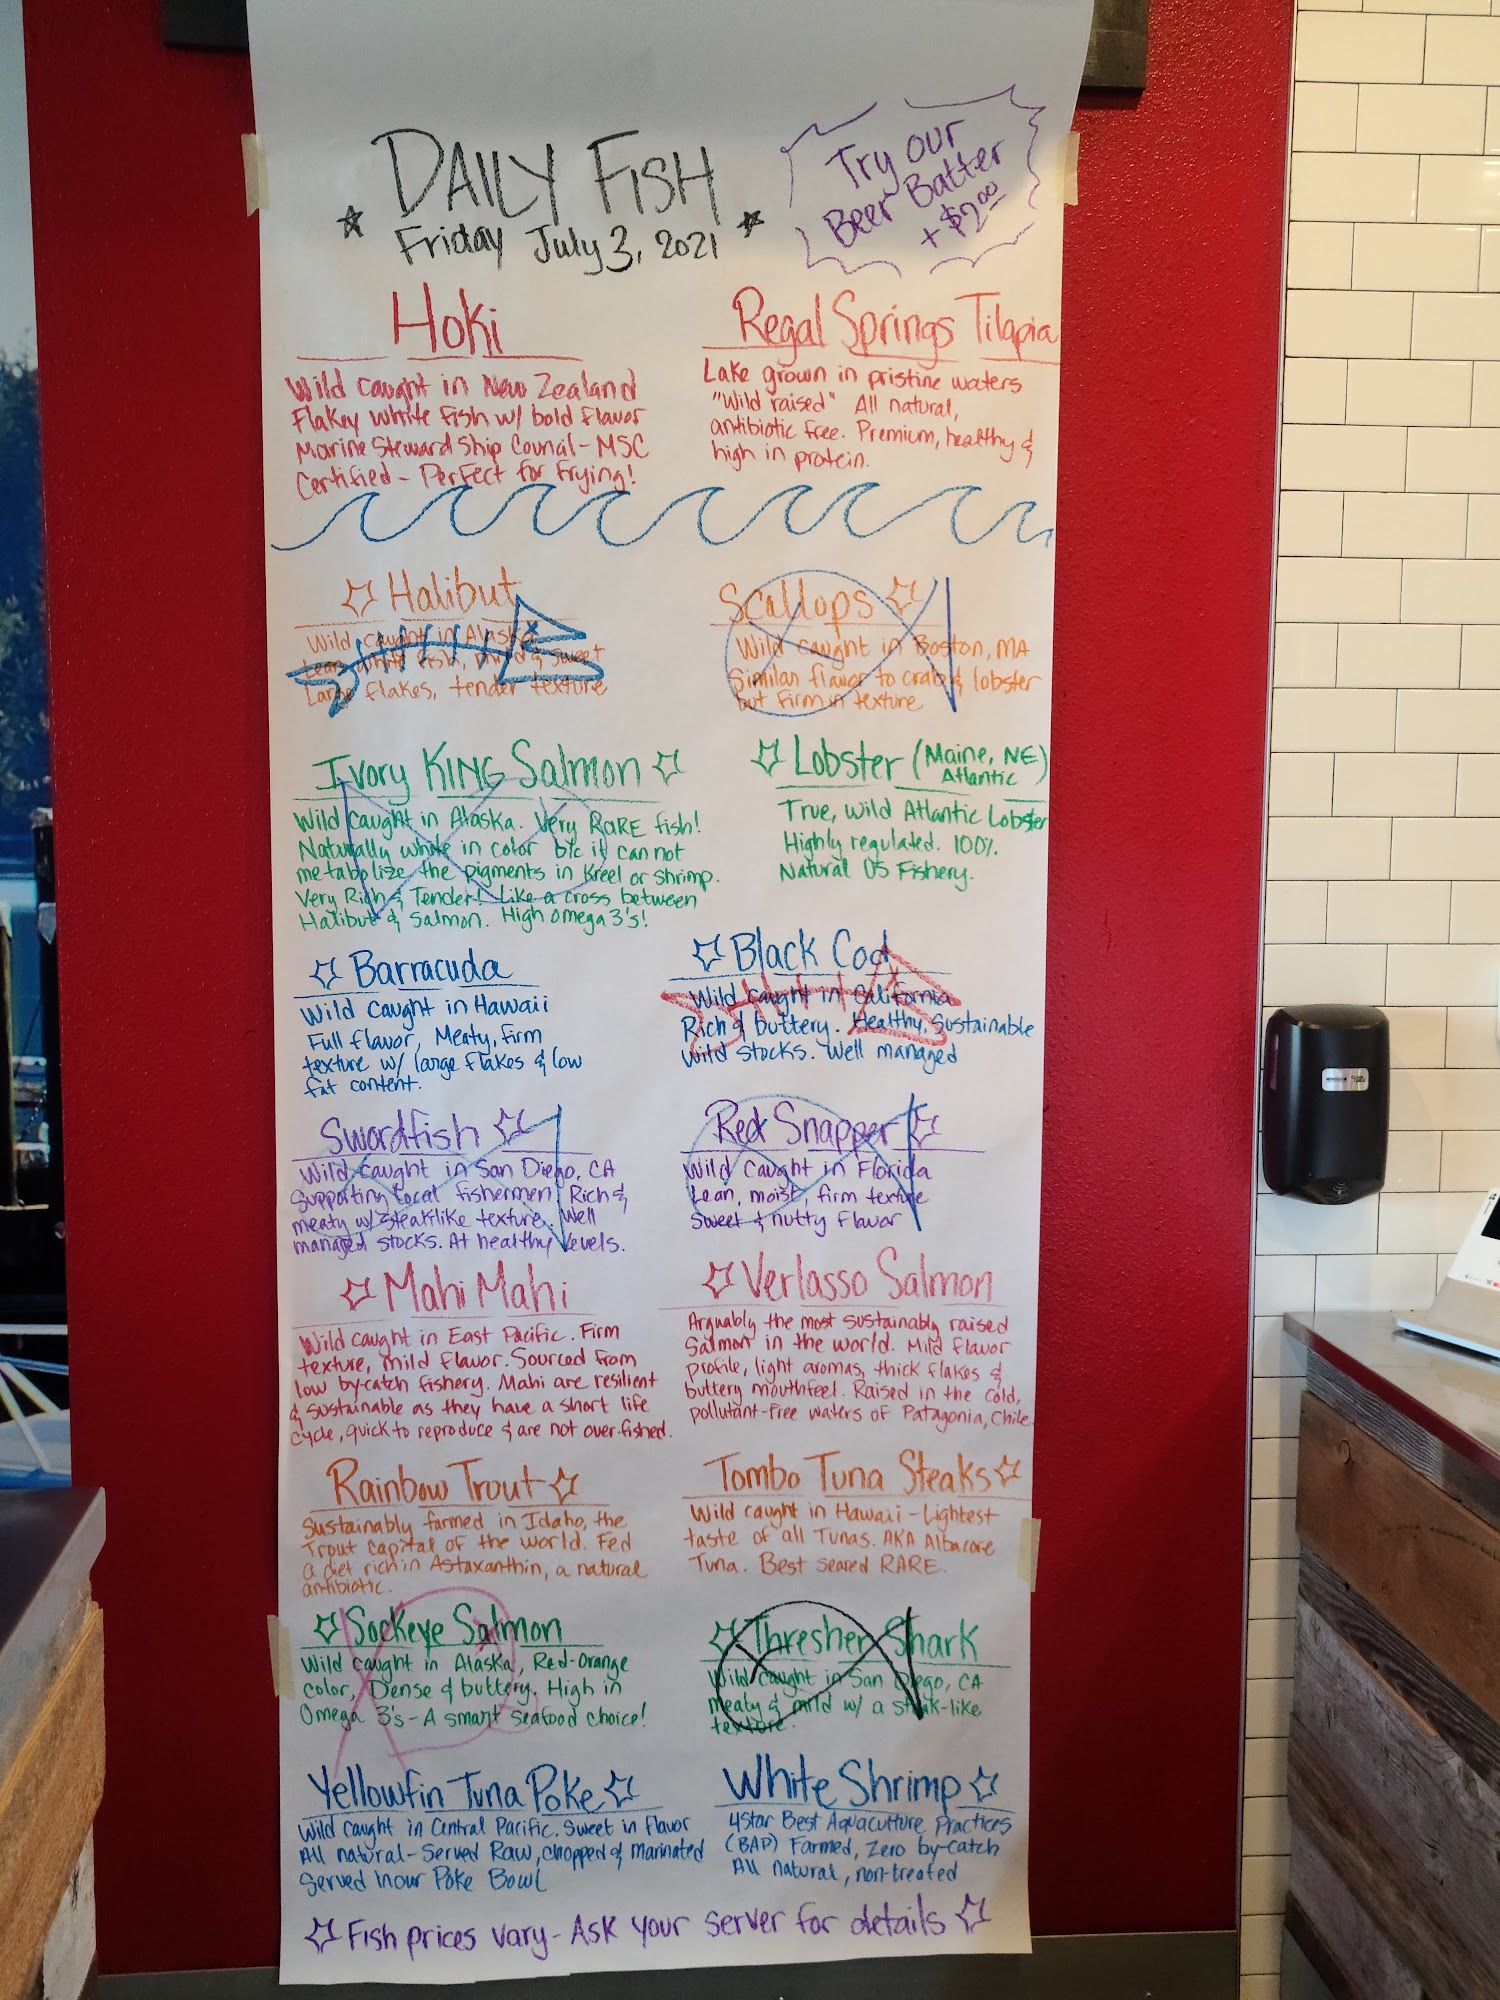 DAILY FISH
Friday July 3, 2021
Try our
Beer Batter
+ $2.00
Hoki
Wild caught in New Zealand
Flakey white fish w/ bold flavor
Marine Steward Ship Council - MSC
Certified - Perfect for frying!
Regal Springs Tilapia
Lake grown in pristine waters
"Wild raised" All natural,
antibiotic free. Premium, healthy &
high in protein.
Halibut
Wild caught in Alaska
Lean white fish, mild & sweet
Large flakes, tender texture
Scallops
Wild caught in Boston, MA
Similar flavor to crab & lobster
but firm in texture
Ivory KING Salmon
Wild caught in Alaska. Very RARE fish!
Naturally white in color b/c it can not
metabolize the pigments in Kreel or shrimp.
Very Rich & Tender! Like a cross between
Halibut & Salmon. High omega 3's!
Lobster (Maine, NE)
Atlantic
True, Wild Atlantic Lobster
Highly regulated. 100%
Natural US Fishery.
Barracuda
Wild Caught in Hawaii
Full flavor, Meaty, firm
texture w/ large flakes & low
fat content.
Black Cod
Wild caught in California
Rich & buttery. Healthy, Sustainable
Wild stocks. Well managed
Swordfish
Wild caught in San Diego, CA
Supporting local fishermen Rich &
meaty w/ steaklike texture. Well
managed stocks. At healthy levels.
Red Snapper
Wild caught in Florida
Lean, moist, firm texture
Sweet & nutty flavor
Mahi Mahi
Wild caught in East Pacific. Firm
texture, mild flavor. Sourced from
low by-catch fishery. Mahi are resilient
& sustainable as they have a short life
cycle, quick to reproduce & are not over-fished.
Verlasso Salmon
Arguably the most sustainably raised
Salmon in the world. Mild flavor
profile, light aromas, thick flakes &
buttery mouthfeel. Raised in the cold,
pollutant-free waters of Patagonia, Chile
Rainbow Trout
Sustainably farmed in Idaho, the
Trout capital of the world. Fed
a diet rich in Astaxanthin, a natural
antibiotic.
Tombo Tuna Steaks
Wild caught in Hawaii - Lightest
taste of all Tunas. AKA Albacore
Tuna. Best seared RARE.
Sockeye Salmon
Wild caught in Alaska, Red-Orange
color, Dense & buttery. High in
Omega 3's - A smart seafood choice!
Thresher Shark
Wild caught in San Diego, CA
Meaty & mild w/ a steak-like
texture.
Yellowfin Tuna Poke
Wild caught in Central Pacific. Sweet in flavor
All natural - Served Raw, chopped & marinated
Served in our Poke Bowl
White Shrimp
4 Star Best Aquaculture Practices
(BAP) Farmed, Zero by-catch
All natural, non-treated
Fish prices vary - Ask your server for details